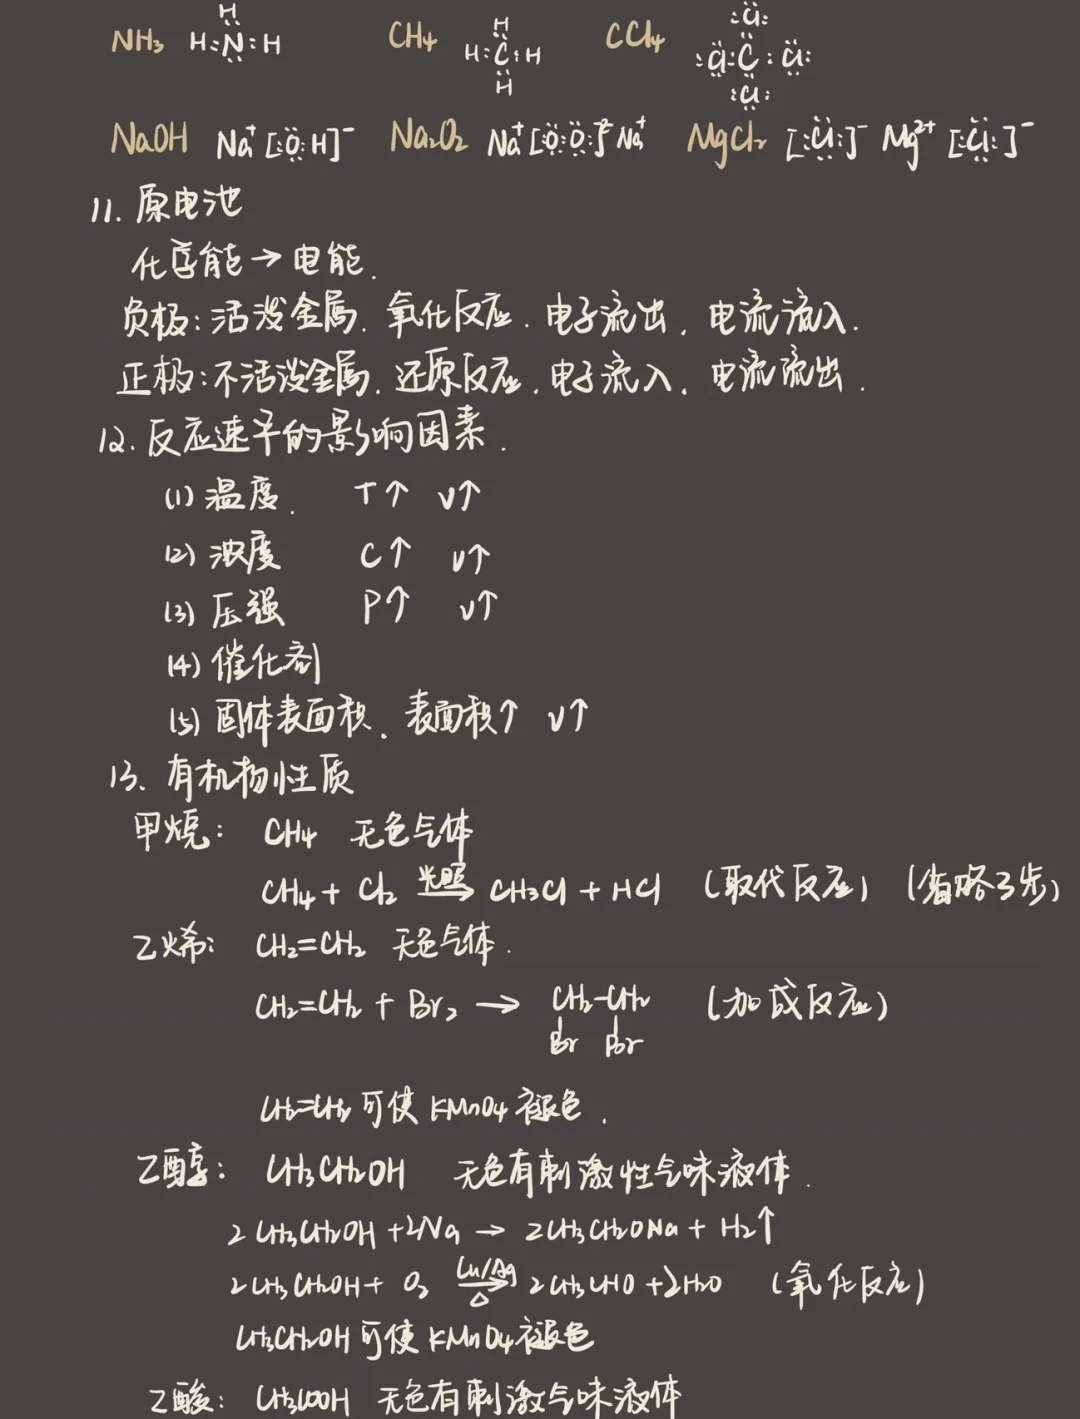 NH₃ H:N:H H CH₄ H:C:H H H CCl₄ :Cl:C:Cl: :Cl: :Cl:
NaOH Na⁺[:O:H]⁻ Na₂O₂ Na⁺[:O:O:]²⁻Na⁺ MgCl₂ [:Cl:]⁻ Mg²⁺ [:Cl:]⁻
11. 原电池
化学能→电能.
负极:活泼金属.氧化反应.电子流出.电流流入.
正极:不活泼金属.还原反应.电子流入.电流流出.
12. 反应速率的影响因素.
(1) 温度. T↑ v↑
(2) 浓度 C↑ v↑
(3) 压强 P↑ v↑
(4) 催化剂
(5) 固体表面积.表面积↑ v↑
13. 有机物性质
甲烷: CH₄ 无色气体
CH₄ + Cl₂ 光照→ CH₃Cl + HCl (取代反应) (省略3步)
乙烯: CH₂=CH₂ 无色气体.
CH₂=CH₂ + Br₂ → CH₂-CH₂ (加成反应)
Br Br
CH₂=CH₂ 可使 KMnO₄ 褪色.
乙醇: CH₃CH₂OH 无色有刺激性气味液体.
2CH₃CH₂OH + 2Na → 2CH₃CH₂ONa + H₂↑
2CH₃CH₂OH + O₂ Cu/Ag→△ 2CH₃CHO + 2H₂O (氧化反应)
CH₃CH₂OH 可使 KMnO₄ 褪色
乙酸: CH₃COOH 无色有刺激气味液体